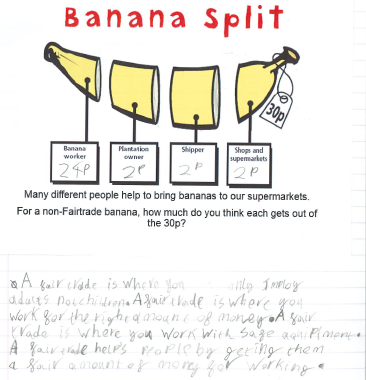 Banana Split
30p
Banana worker
Plantation owner
Shipper
Shops and supermarkets
24P
2P
2P
2P
Many different people help to bring bananas to our supermarkets.
For a non-Fairtrade banana, how much do you think each gets out of
the 30p?
A fair trade is where you only Imploy
adults not children. A fair trade is where you
work for the right amount of money. A fair
trade is where you work with safe
A fair trade helps people by geting them
a fair amount of money for working.